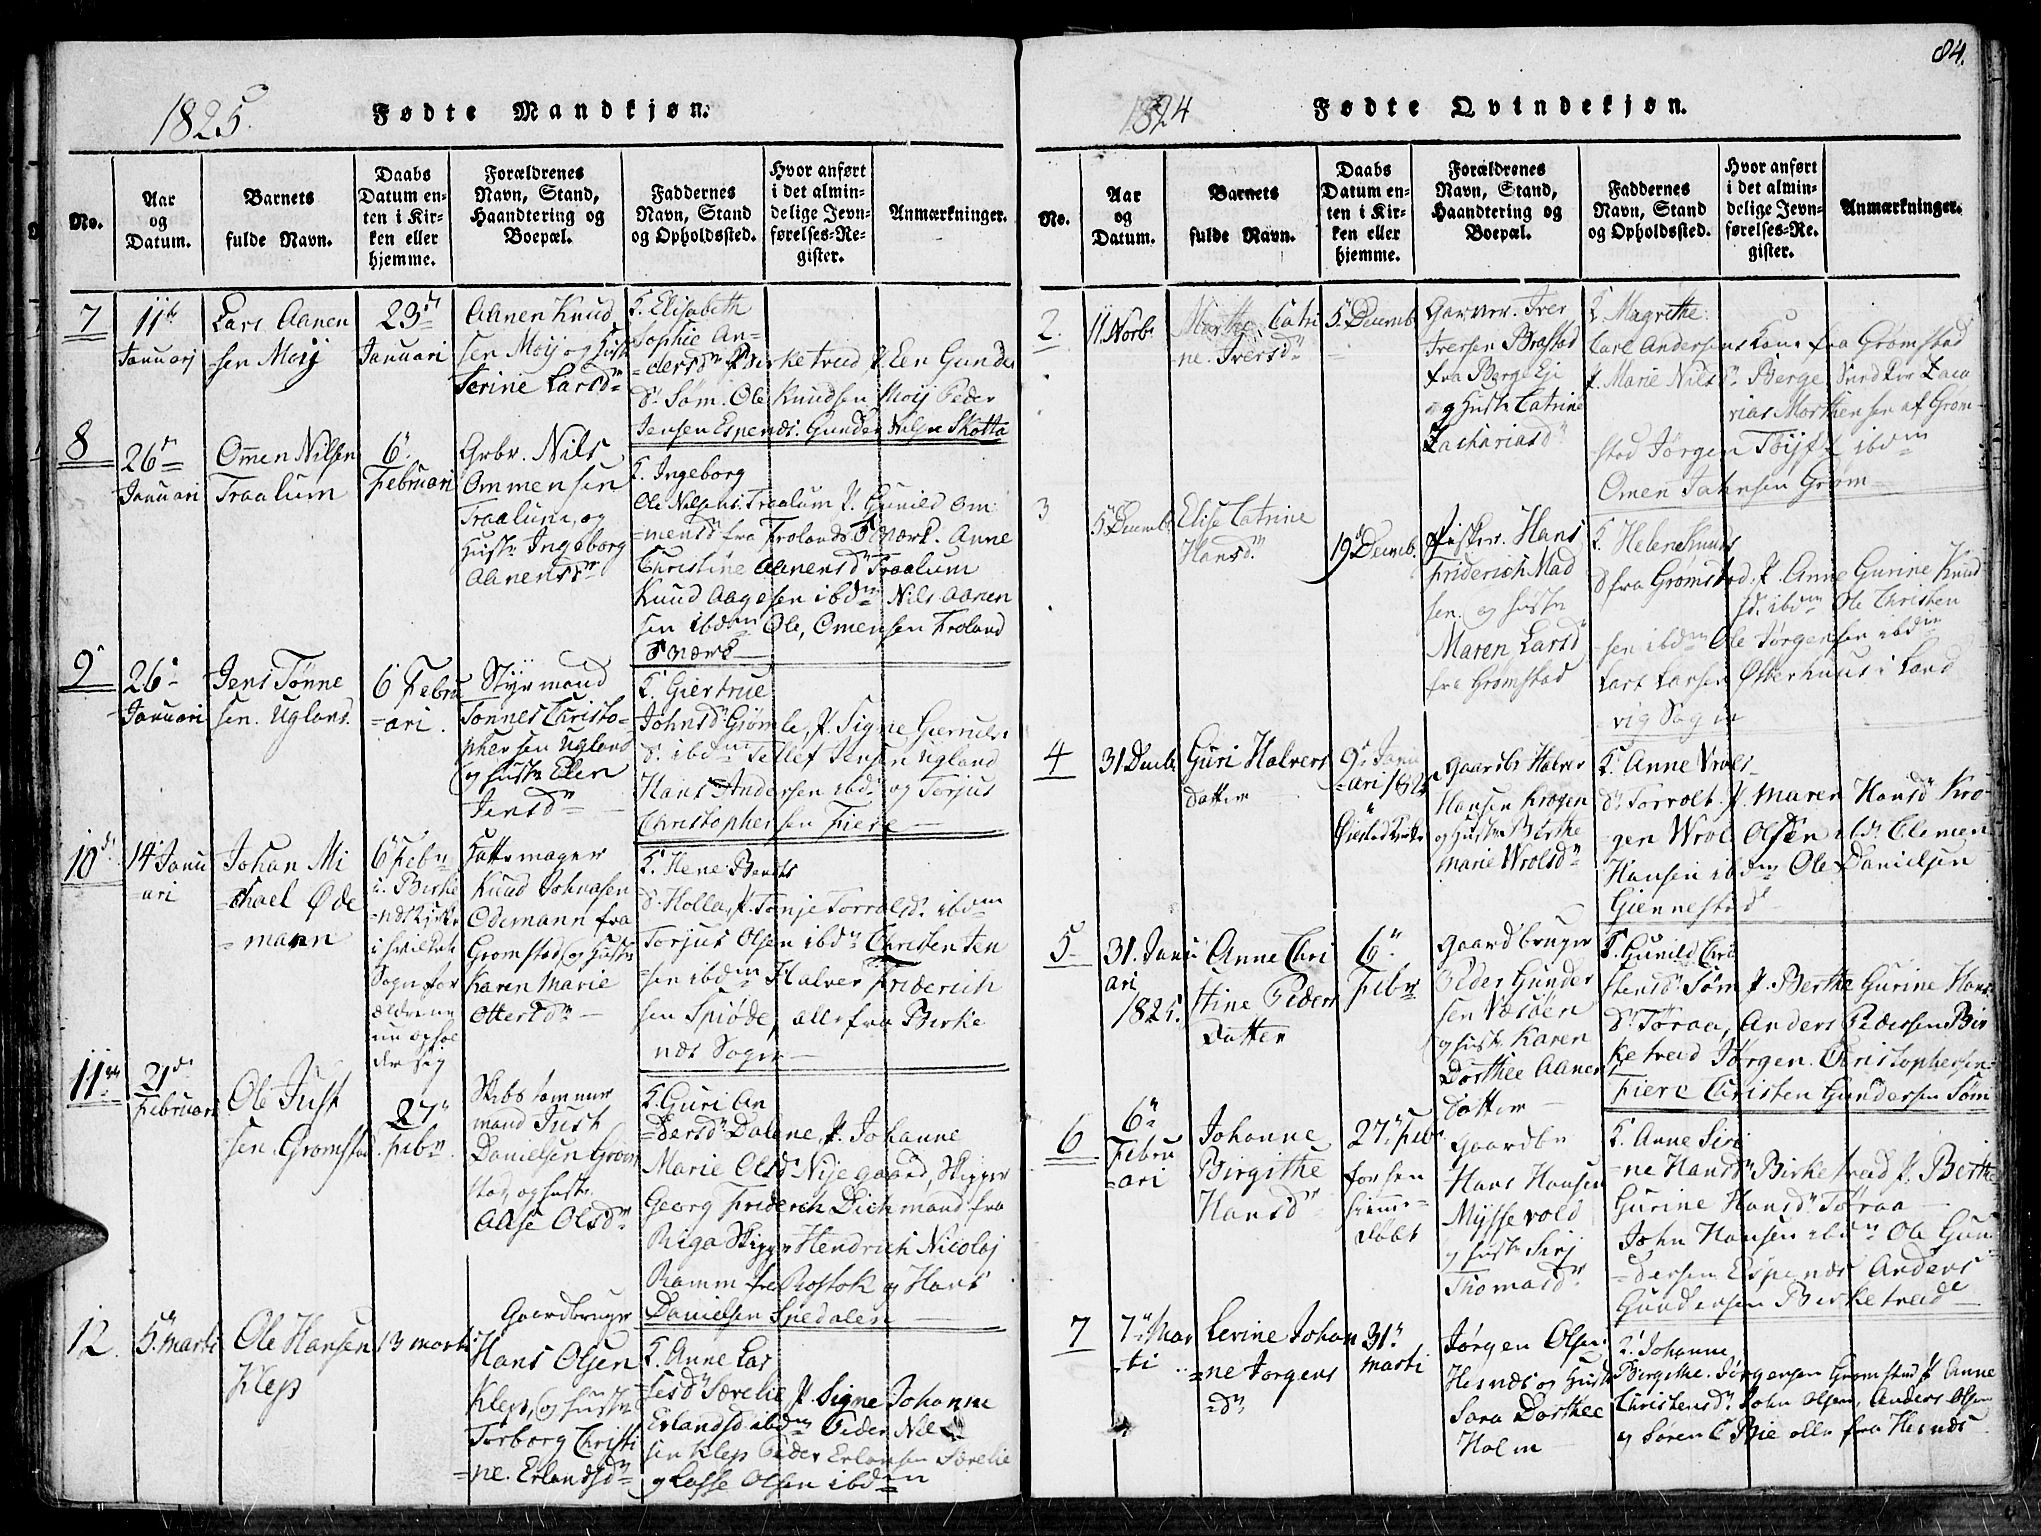 84.
1825.
Fødte Mandkjøn.
No.
Aar
og
Datum.
Barnets
fulde Navn.
Daabs
Datum en-
ten i Kir-
ken eller
hjemme.
Forældrenes
Navn, Stand,
Haandtering og
Boepæl.
Faddernes
Navn, Stand
og Opholdssted.
Hvor anført
i det almin-
delige Jevn-
førelses-Re-
gister.
Anmærkninger.
7
11te
Januarj
Lars Aanen
sen Moij
23d
Januari
Aanen Knud
sen Moij og Hust
Terine Larsdn
K. Elisabeth
Sophie An-
dersdn Birketved P. Een Gunde
Dr Søm. Ole Knudsen Moij Peder
Jensen Espenæs. Gunder Nilsen Skotta
8
26d
Januari
Omen Nilsen
Traalum
6
Februari
Grbr. Nils
Ommensen
Traalum, og
Hustr Ingeborg
Aanensdr
K. Ingeborg
Ole Nilsens Traalum P. Gunild Om
=mensd fra Frolands Værk. Anne
Christine Aanensd Traalum
Knud Aagesen ibdm Nils Aanen
sen ibdm Ole, Omensen Froland
Værk
9
26
Januari
Jens Tønne
sen. Ugland.
6 Febru
=ari.
Styrmand
Tønnes Christo-
phersen Ugland
og Hustr Elen
Jensdn
K. Giertrue
Johnsd Gjømle, P. Signe Gierulds
d. ibdm Tellef Jensen Ugland
Hans Andersen ibd og Torjus
Christophersen Fiere
10
14 Janu
ari
Johan Mi
chael Øde
=mann
6 Febr
i Birke
næs Kirke
i hvilket
Sogn for
ældrene
nu ophol
der sig
Hattemager
Knud Johnsen
Ødemann fra
Gromstad og Hustr
Karen Marie
Ottersdn
K. Hene Bents
d. Holla, P. Tonje Torrolsd. ibdm
Torjus Olsen ibdn Christen Ten
sen ibdm Halver Friderich
sen Spiøde, alle fra Birke
næs Sogn
11
21d
Februari
Ole Just
sen. Gromstad
27
Febr
Skibstømmer
mand Just
Danielsen Grom
stad, og Hustr
Aase Olsdn
K. Guri An
=dersd Dalene, P. Johanne
Marie Olsd Nijegaard, Skipper
Georg Friderich Dichmand fra
Riga Skipper Hendrich Nicolaj
Ramm fra Rostok og Hans
Danielsen Spedalen
12
5. Marti
Ole Hansen
Klep
13 Marti
Gaardbruger
Hans Olsen
Klep, og Hustr
Torborg Christi
=ne. Erlandsdn
K. Anne Las
sesdn Særelie P. Signe Johanne
Erlandsd ibdm Peder Nil
sen Klep Peder Erlandsen Særelie
og Lasse Olsen ibdm
1824
Fødte Qvindekjøn.
No.
Aar
og
Datum.
Barnets
fulde Navn.
Daabs
Datum en-
ten i Kir-
ken eller
hjemme.
Forældrenes
Navn, Stand,
Haandtering og
Boepæl.
Faddernes
Navn, Stand
og Opholdssted.
Hvor anført
i det almin-
delige Jevn-
førelses-Re-
gister.
Anmærkninger.
2.
11 Novbr
Marthe Catri
ne. Iversdn
5. Decemb
Garver. Iver
Iversen Brastad
fra Berge Eje
og Hustr Catrine
Zachariasdn
K. Magrethe
Carl Andersens Kone fra Grømstad
P. Marie Nilsdn Berge
rias Morthensen af Grøm-
stad Jørgen ibdm
Omen Johnsen Grøm
3
5 Decemb
Elise Catrine
Hansdn
19 Decemb.
Fisker. Hans
Friderich Mad
sen. og Hustr
Maren Larsd
fra Grømstad
K. Helene Knuds
d fra Grømstad, P. Anne Gurine Knud
sd. ibdm Ole Christen
sen ibdm Ole Jørgensen ibdm
Lars Larsen Østerhuus i Land
vig Sogn
4
31 Decbr
Guri Halvers
datter
9 Janu
=ari 1825
Øiestad Kirke
Gaardbr Halver
Hansen Krogen
og Hustr Birthe
Marie Wrolsdn
K. Anne Vrols-
dr Torrolt. P. Maren Hansdn Kro
gen Wrol Olsen ibdn Clemen
Hansen ibdm Ole Danielsen
Giennestad
5
31. Janu
ari
1825.
Anne Chri
stine Peders
Datter
6
Febr
Gaardbruger
Peder Gunder
sen Væsøen
og Hustr Karen
Dorthee Aanens
datter
K. Gunild Chri
stensdr Søm P. Berthe Gurine Hans
dr Tøraa, Anders Pedersen Bir
ketved Jørgen. Christophersen
Fiere Christen Gundersen Søm
6
6
Febru
=ari
Johanne
Birgithe
Hansdr
27. Febr
forhen
hiemme
døbt
Gaardbr
Hans Hansen
Myssevold
og Hustr Sirj
Thomasdr
K. Anne Siri
=ne Hansdn Birketved P. Berthe
Gurine Hansdn Tøraa
John Hansen ibdn Ole Gun
=dersen Espenæs Anders
Gundersen Birketvede
7
7 Mar
ti
Levine Johan
=ne Jørgens
=dn
31
Marti
Jørgen Olsen
Hesnæs og Hustr
Sara Dorthee
Holm
K. Johanne
Birgithe. Jørgensen Grømstad P. Anne
Christensdn John Olsen, Anders Olsen
og Søren C Bie alle fra Hesnæs